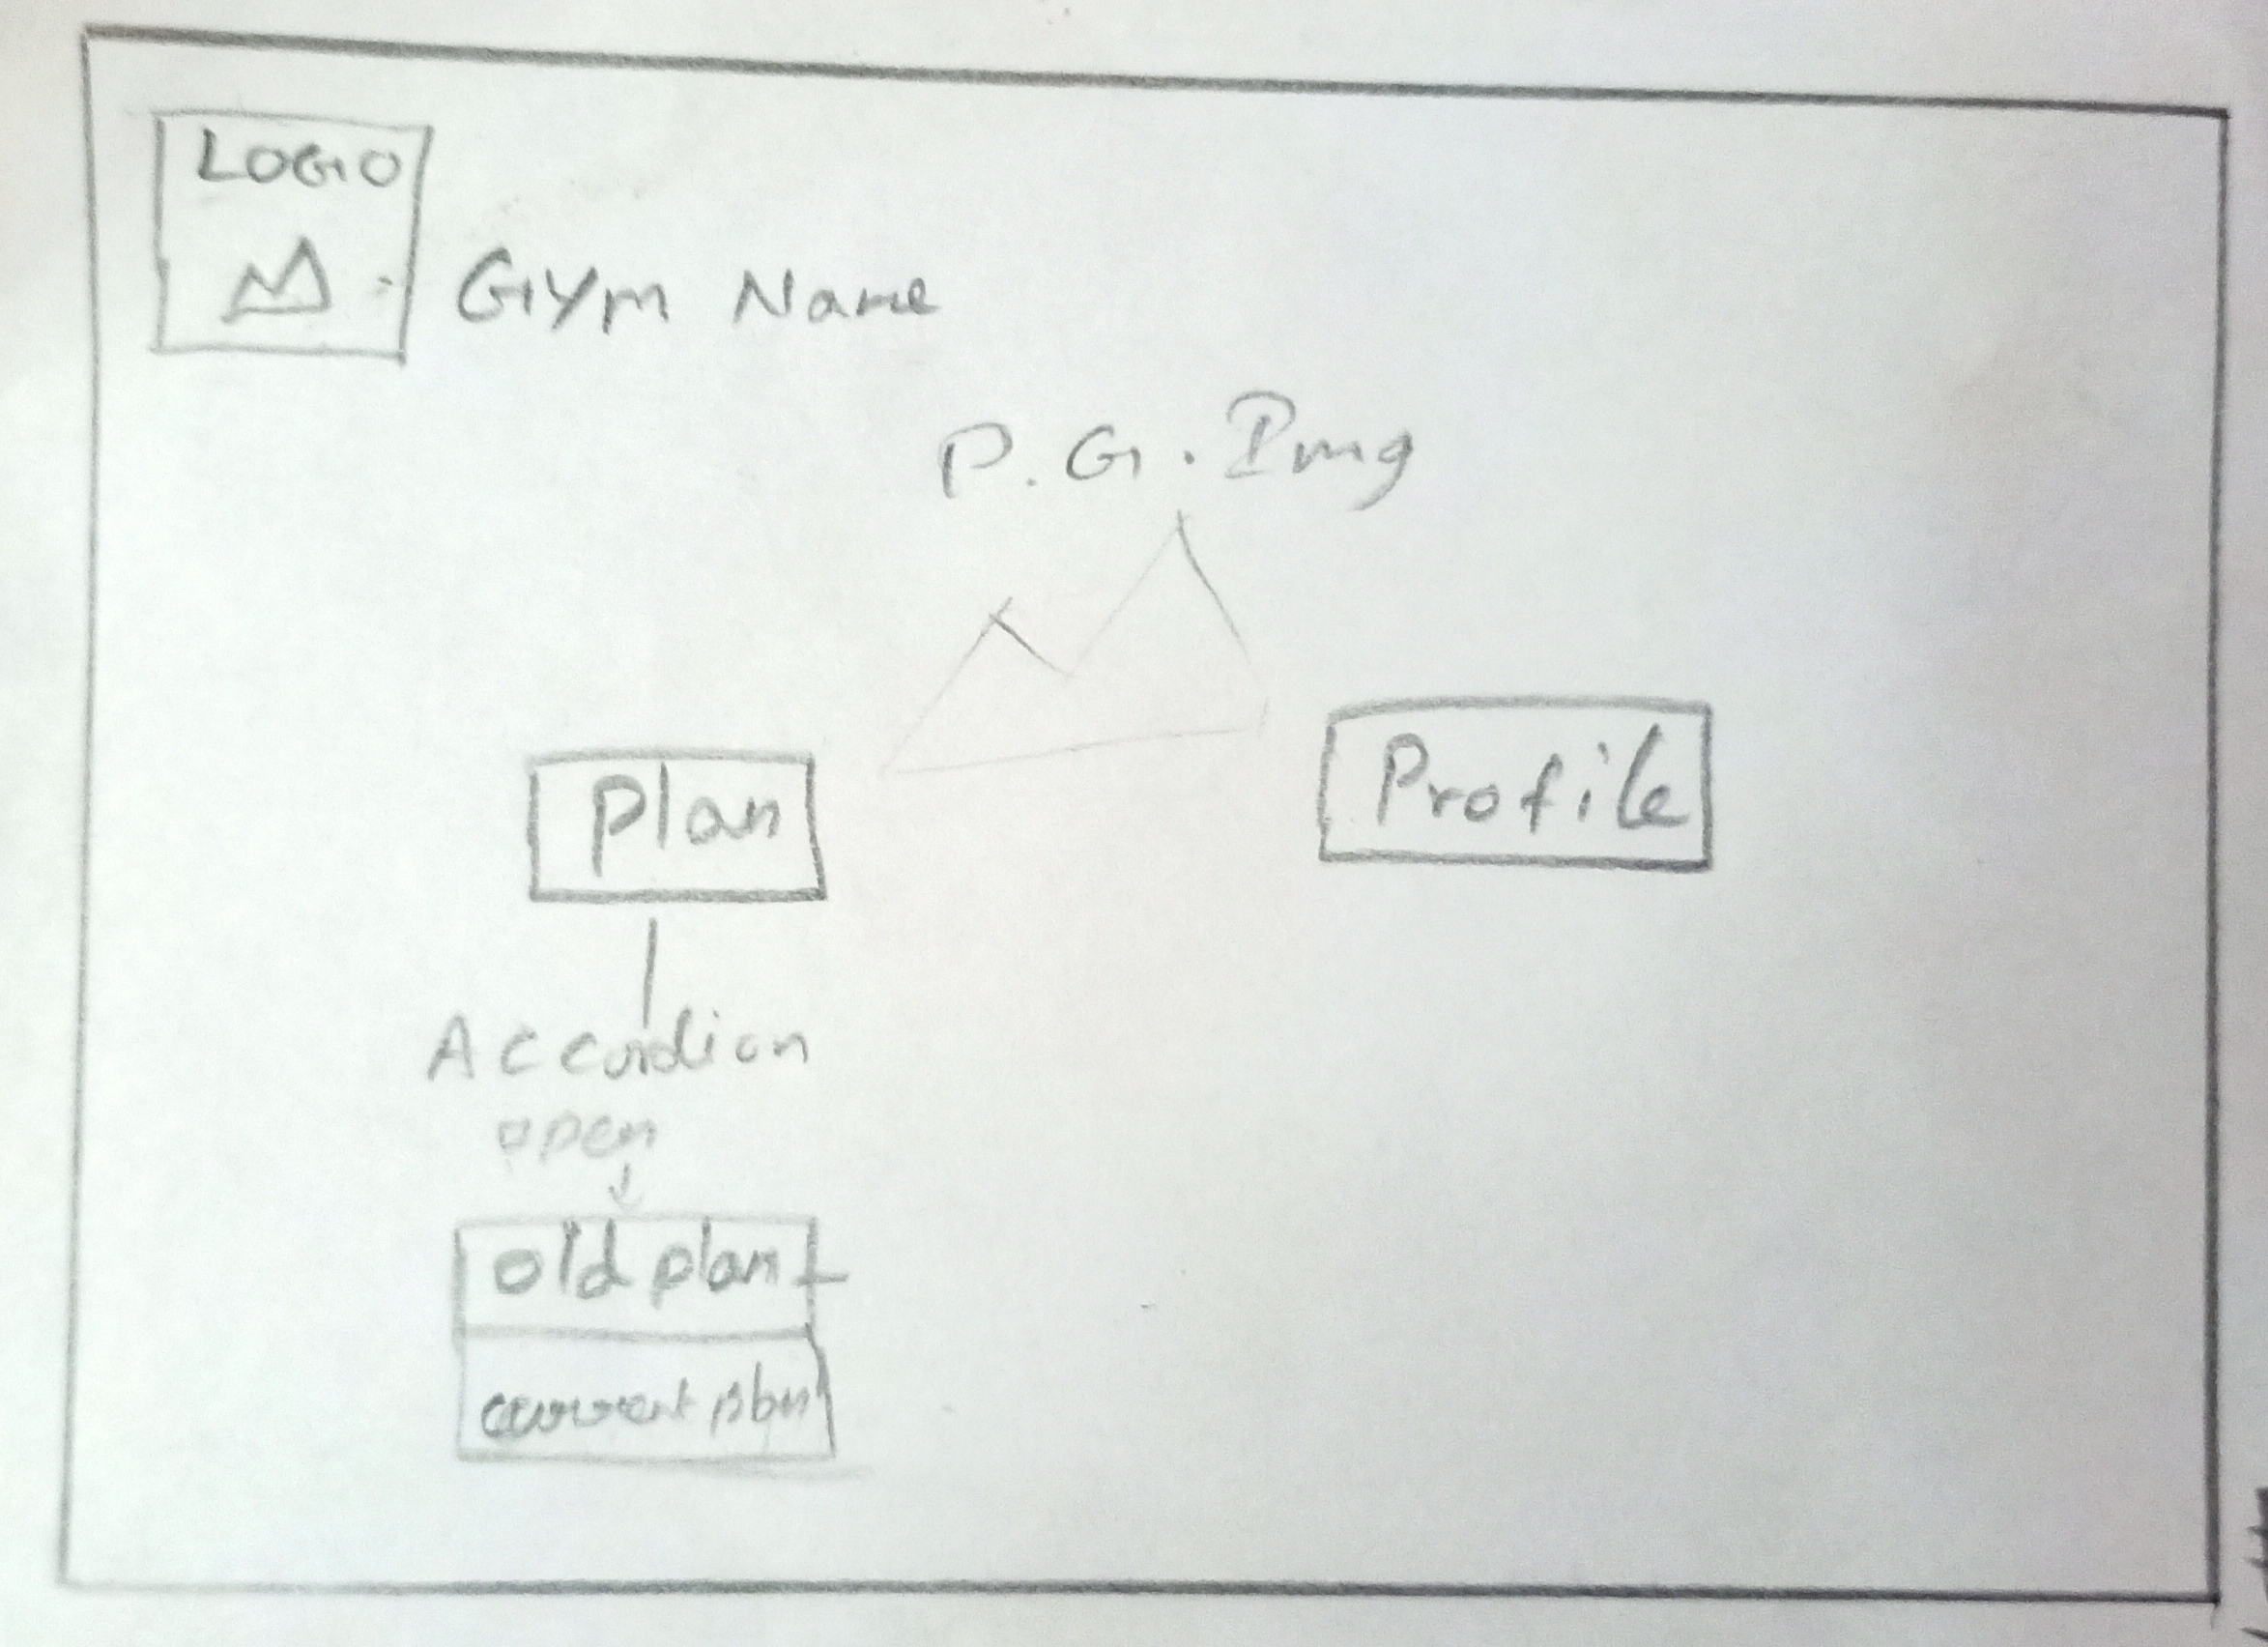 LOGO
Gym Name
P.G. Img
Plan
Profile
Accordion
open
old plan
current plan